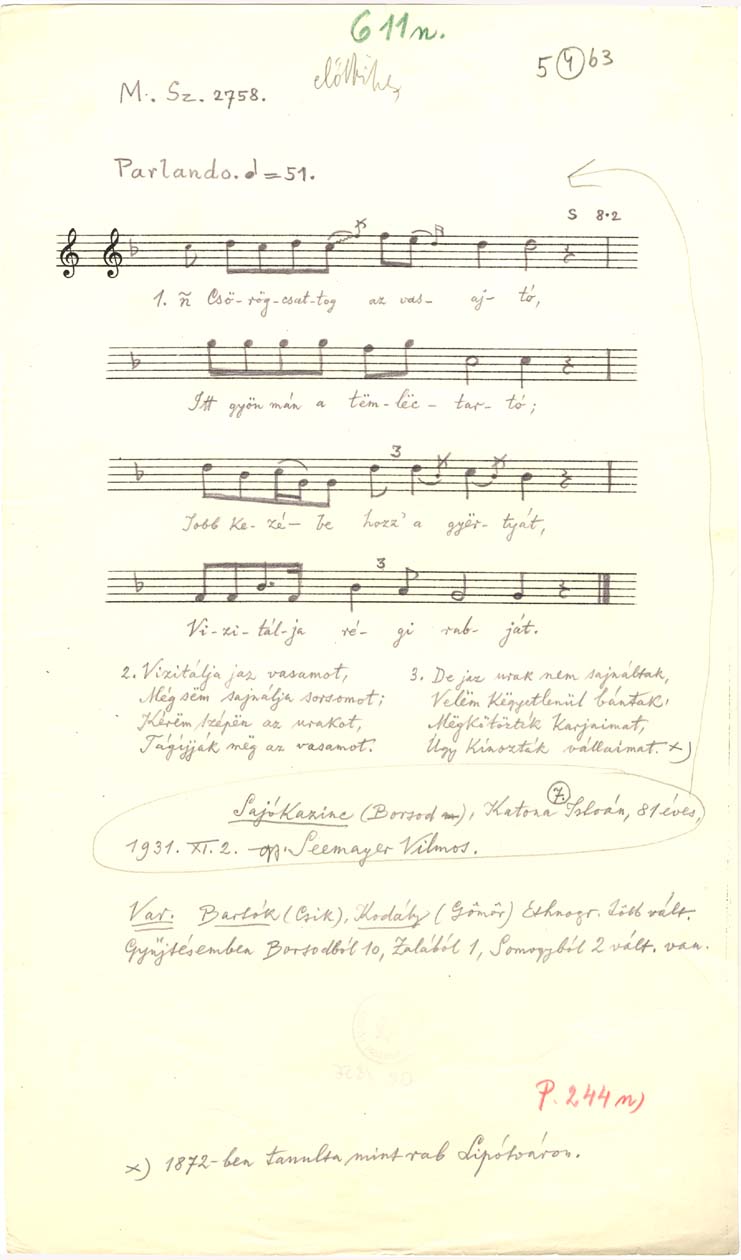 611n.
5 4 63
M. Sz. 2758.
Parlando. = 51.
S 8.2
1. ñ Csö-rög-csat-tog az vas- aj- tó,
Itt gyön mán a tëm-lëc- tar- tó;
3
Jobb ke-zé- be hozz' a gyër-tyát,
3
Vi-zi-tál-ja ré- gi rab- ját.
2. Vizitálja jaz vasamot,
Még sëm sajnálja sorsomot;
Kérëm szépën az urakot,
Tágijják mëg az vasamot.
3. De jaz urak nem sajnáltak,
Velëm kegyetlenül bántak,
Mëgkötözték karjaimat,
Úgy kínozták vállaimat. x)
7.
Sajókazinc (Borsod m), Katona István, 81 éves,
1931. XI. 2. Seemayer Vilmos.
Var. Bartók (Csik), Kodály (Gömör) Ethnogr. több vált.
Gyűjtésemben Borsodból 10, Zalából 1, Somogyból 2 vált. van.
P. 244n)
x) 1872-ben tanulta mint rab Lipótváron.